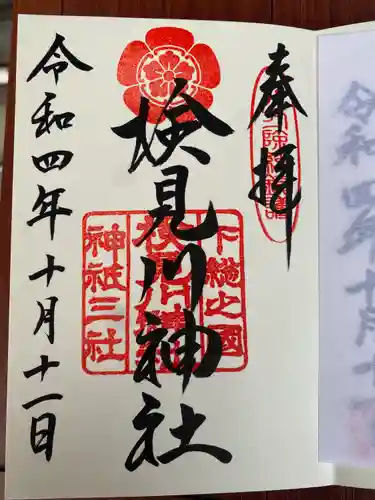 奉拝
検見川神社
令和四年十月十一日
下総之国
神祇三社